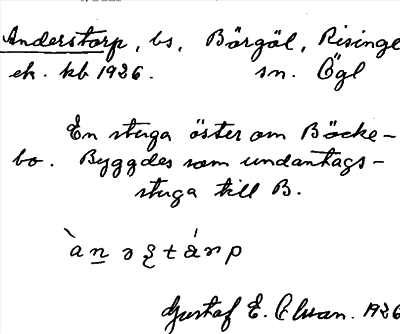 Anderstorp, bs, Börgöl, Risinge
ek. kb 1926. sn. Ögl
En stuga öster om Böcke-
bo. Byggdes som undantags-
stuga till B.
Gustaf E. 1926